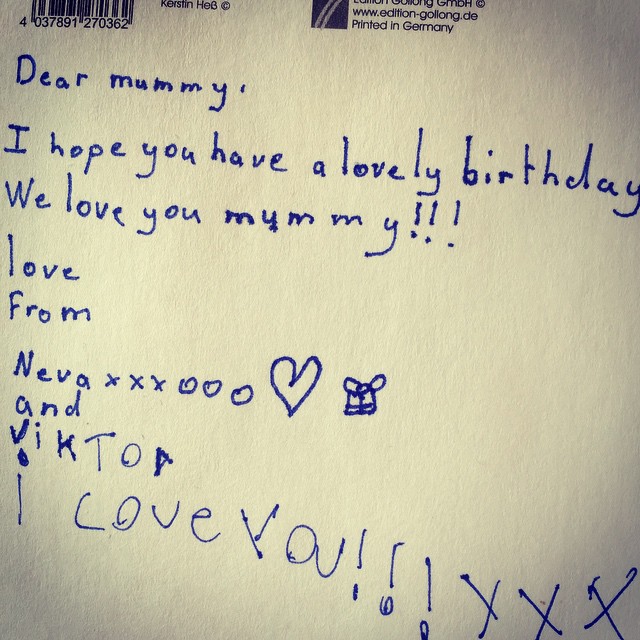 4 037891 270362
Kerstin Heß ©
Edition Gollong GmbH ©
www.edition-gollong.de
Printed in Germany
Dear mummy.
I hope you have a lovely birthday
We love you mummy!!!
love
From
Neva xxx ooo
and
Viktor
I Love You!!! xxx